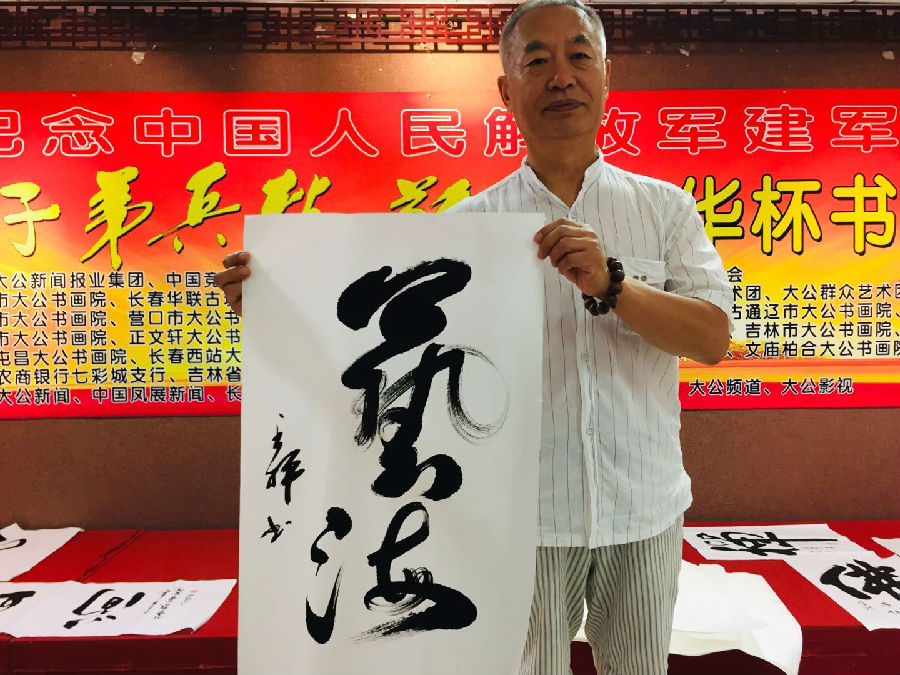 纪念中国人民解放军建军
子弟兵
华杯书
大公新闻报业集团、中国竞
会
市大公书画院、长春华联古
术团、大公群众艺术团
市大公书画院、营口市大公书
古通辽市大公书画院
市大公书画院、正文轩大公书
吉林市大公书画院
屯昌大公书画院、长春西站大
文庙柏合大公书画院
农商银行七彩城支行、吉林省
大公新闻、中国风展新闻、长
大公频道、大公影视
藝海